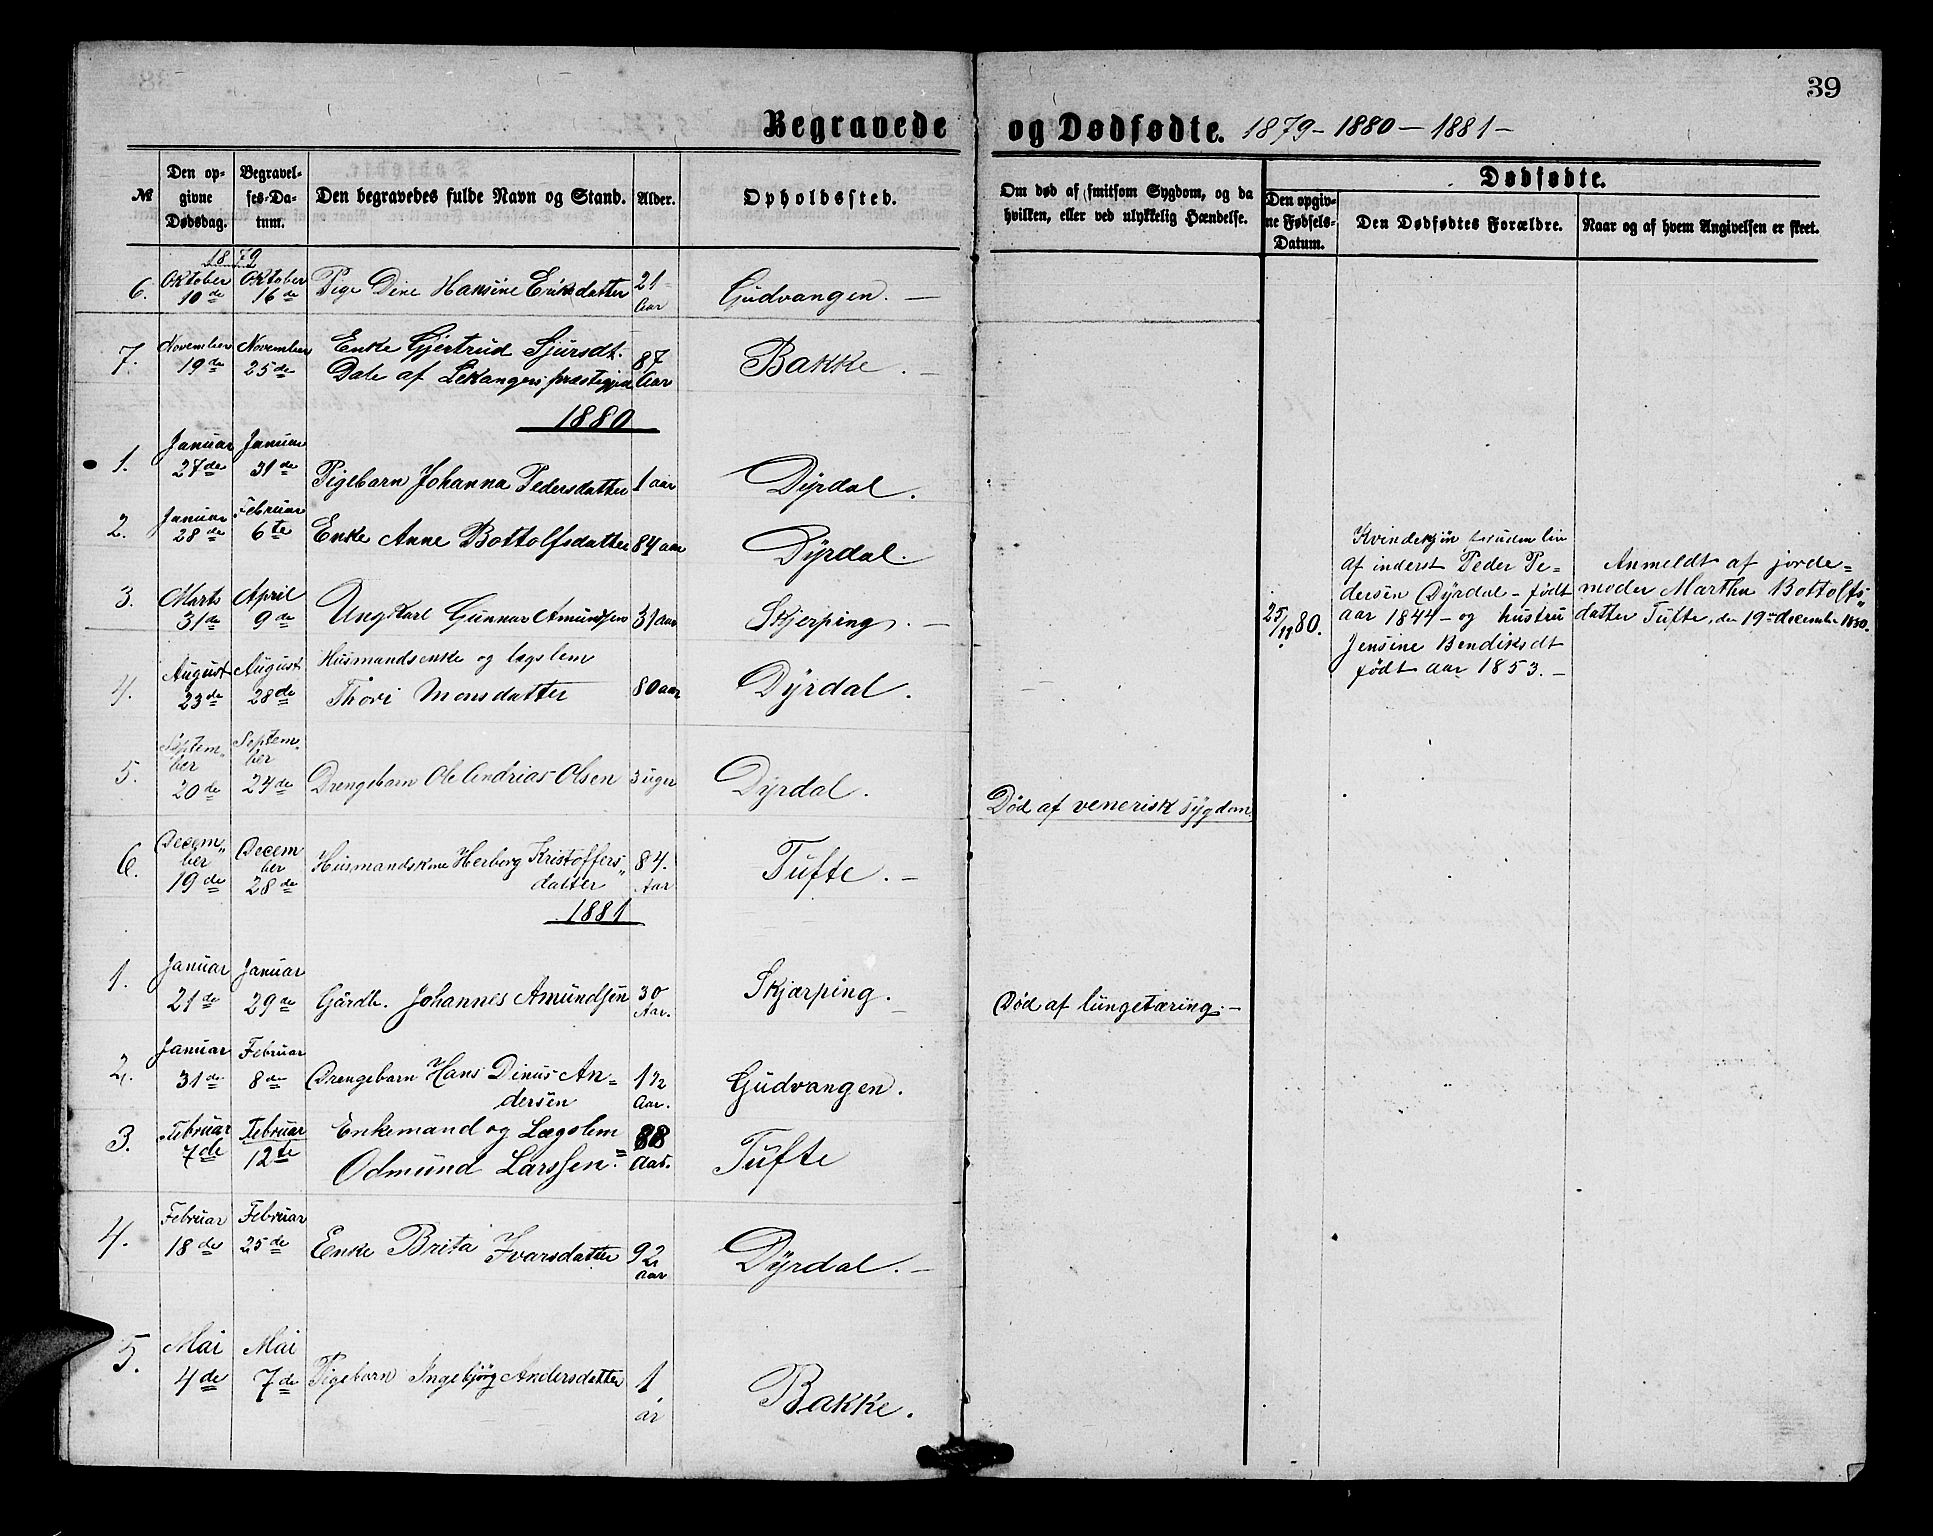 39
Begravede og Dødfødte. 1879 - 1880 - 1881 -
№ Den opgivne Dødsdag. Begravelses-Datum. Den begravedes fulde Navn og Stand. Alder. Opholdssted. Om død af smitsom Sygdom, og da hvilken, eller ved ulykkelig Hændelse. Dødfødte.
Den opgivne Fødsels-Datum. Den Dødfødtes Forældre. Naar og af hvem Angivelsen er skeet.
1879
6. Oktober 10de Oktober 16de Pige Dine Hansine Eriksdatter 21 Aar Gudvangen. —
7. November 19de November 25de Enke Gjertrud Sjursdt. Dale af Lekangers præstegjæld 87 Aar Bakke. —
1880
1. Januar 27de Januar 31de Pigebarn Johanna Pedersdatter 1 aar Dÿrdal.
2. Januar 28de Februar 6te Enke Anne Bottolfsdatter 84 aar Dÿrdal.
3. Marts 31de April 9de Ungkarl Gunnar Amundsen 31 aar Skjerping. —
25/11 80. Kvindekjøn uden liv
af inderst Peder Pe=
dersen Dÿrdal - født
aar 1844 - og hustru
Jensine Bendiksdt
født aar 1853. —
Anmeldt af jorde=
moder Martha Bottolfs„
datter Tufte, den 19de december 1880.
4. August 23de August 28de Husmandsenke og lægslem
Thori Monsdatter 80 aar Dÿrdal.
5. September 20de September 24de Drengebarn Ole Andrias Olsen 3 uger Dÿrdal. Død af venerisk sÿgdom
6. December 19de December 28de Husmandskone Herborg Kristoffers„
datter 84. Aar Tufte. —
1881
1. Januar 21de Januar 29de Gårdb. Johannes Amundsen 30 Aar. Skjærping. Død af lungetæring. —
2. Januar 31de Februar 8de Drengebarn Hans Dinus An=
dersen 1½ Aar. Gudvangen.
3. Februar 7de Februar 12te Enkemand og Lægslem
Odmund Larssen. 88 Aar. Tufte
4. Februar 18de Februar 25de Enke Brita Ivarsdatter 92 aar Dÿrdal. —
5. Mai 4de Mai 7de Pigebarn Ingebjørg Andersdatter 1 år Bakke.